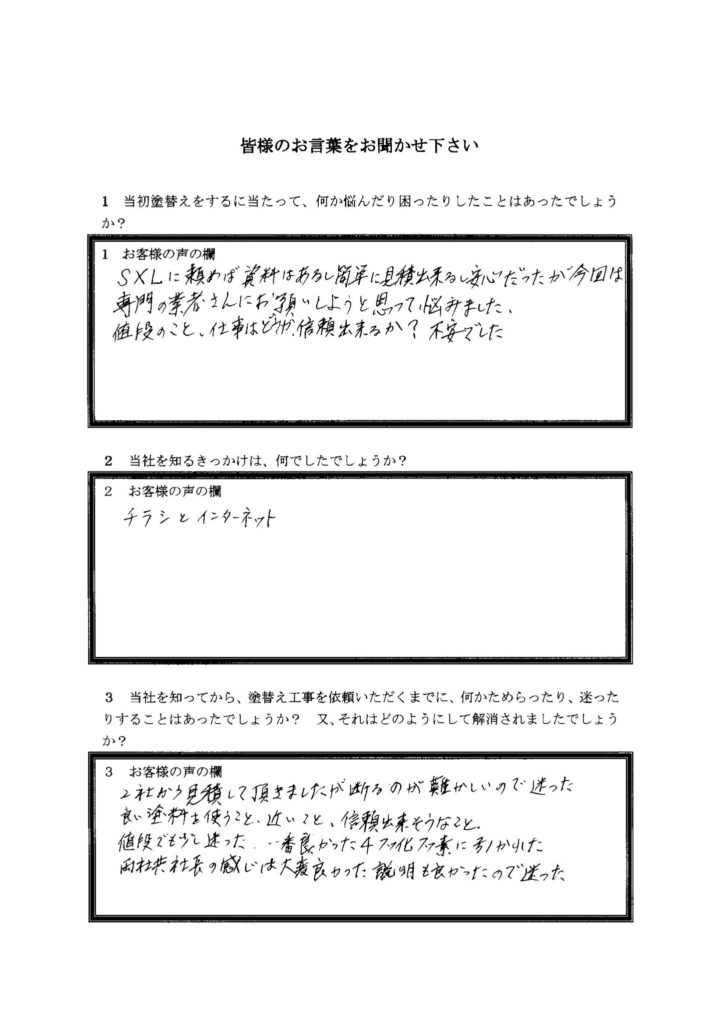 皆様のお言葉をお聞かせ下さい
1 当初塗替えをするに当たって、何か悩んだり困ったりしたことはあったでしょう
か？
1 お客様の声の欄
SXLに頼めば資料はあるし簡単に見積出来るし安心だったが今回は
専門の業者さんにお願いしようと思って悩みました、
値段のこと、仕事はどうか、信頼出来るか？不安でした
2 当社を知るきっかけは、何でしたでしょうか？
2 お客様の声の欄
チラシとインターネット
3 当社を知ってから、塗替え工事を依頼いただくまでに、何かためらったり、迷った
りすることはあったでしょうか？ 又、それはどのようにして解消されましたでしょう
か？
3 お客様の声の欄
2社から見積して頂きましたが断るのが難かしいので迷った
良い塗料を使うこと、近いこと、信頼出来そうなこと、
値段でも少し迷った、一番良かった4フッ化フッ素に引かれた
両社共社長の感じは大変良かった説明も良かったので迷った